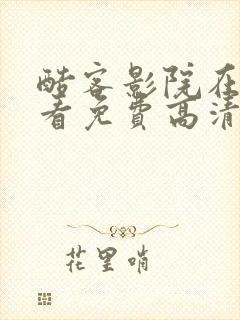 酷客影院在
看免费高清
花里哨